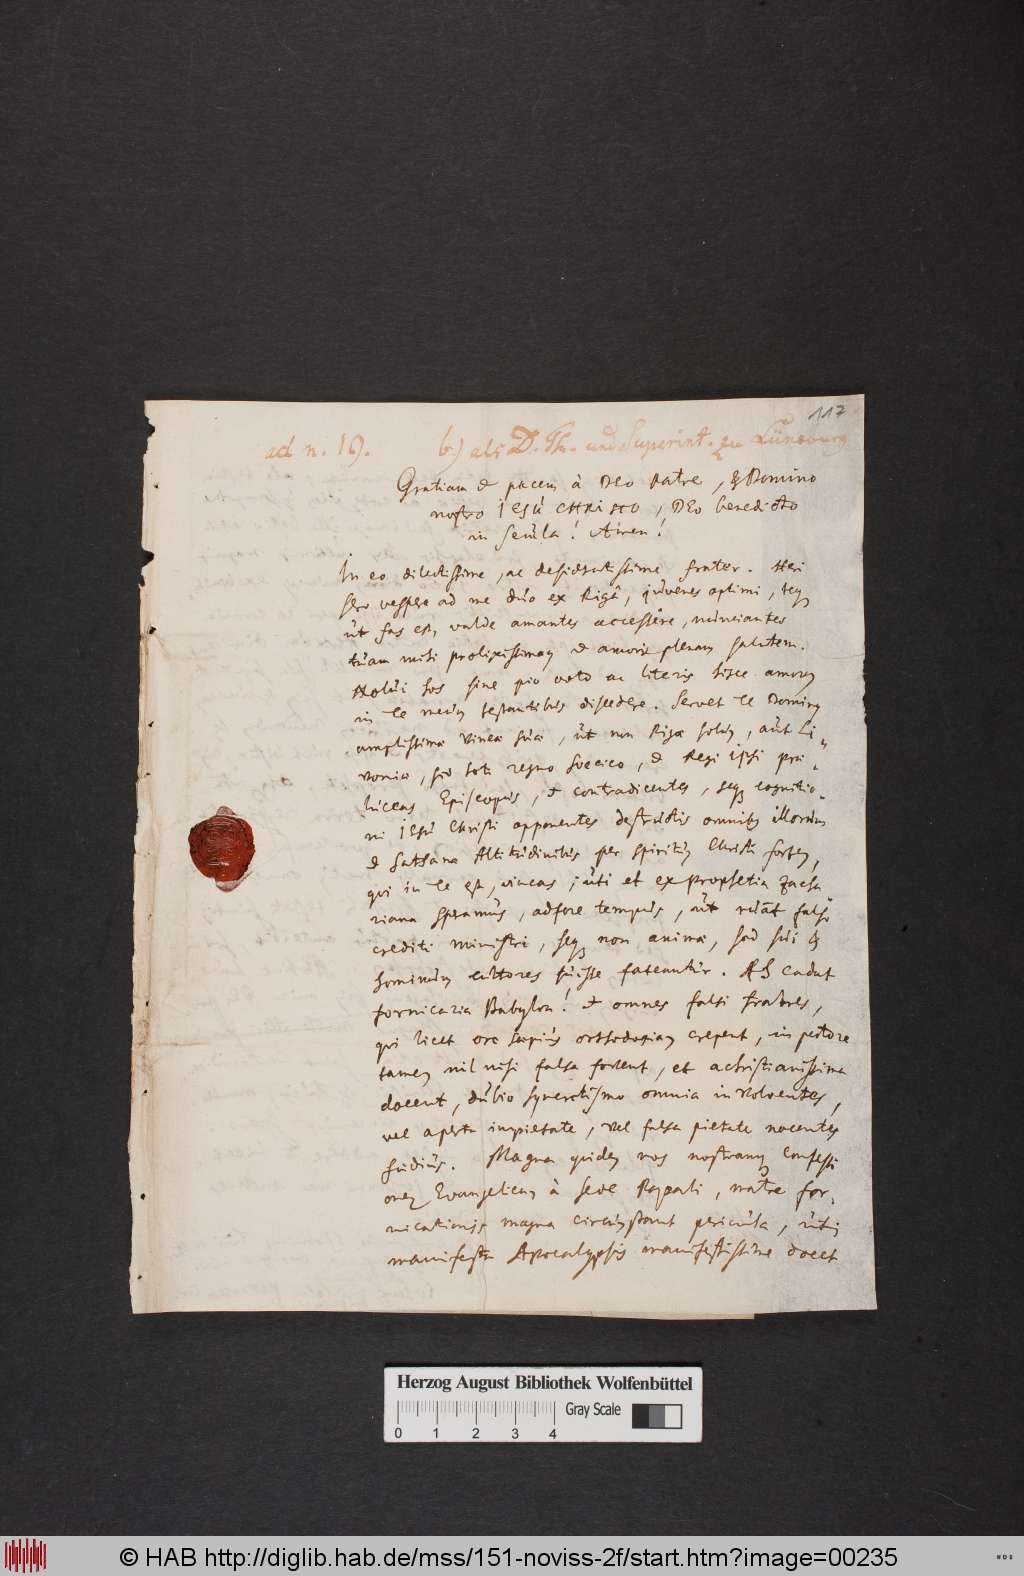 117
ad n. 19. b.) als D. Th. und Superint. zu Lüneburg
Gratiam & pacem à DEO Patre, & Domino
nostro IESU CHRISTO, DEO benedicto
in secula! Amen!
In eo dilectissime, ac desideratissime frater. Heri
sero vespere ad me duo ex Rigâ, juvenes optimi, teq
ut fas est, valde amantes accessere, nunciantes
tuam mihi prolixissimam & amoris plenam salutem.
Nolui hos sine pio voto ac literis hisce amorem
in te meum testantibus discedere. Servet te Dominus
amplissimæ vineæ suæ, ut non Rigæ solum, aut Li-
voniæ, sed toti regno Suecico, & Regi ipsi præ-
luceas Episcopus, & contradicentes, seq cognitio-
ni IESU Christi opponentes destructis omnibus illorum
& Sathanæ Altitudinibus per spiritum Christi fortem,
qui in te est, vincas; uti et ex prophetia Zacha
riana speramus, adfore tempus, ut falso
crediti ministri, seq non animæ, sed sui &
hominum cultores fuisse fateantur. Ah cadat
fornicaria Babylon! & omnes falsi fratres,
qui licet ore sæpius orthodoxiam crepent, in pectore
tamen nil nisi falsa fovent, et achristianissima
docent, dubio syncretismo omnia involventes,
vel aperta impietate, vel falsa pietate nocentes
fœdius. Magna quidem nos nostramq Confessi
onem Evangelicam à sede Papali, matre for-
nicationis magna circumstant pericula, uti
manifesta Apocalypsis manifestissime docet
Herzog August Bibliothek Wolfenbüttel
Gray Scale
0 1 2 3 4
© HAB http://diglib.hab.de/mss/151-noviss-2f/start.htm?image=00235